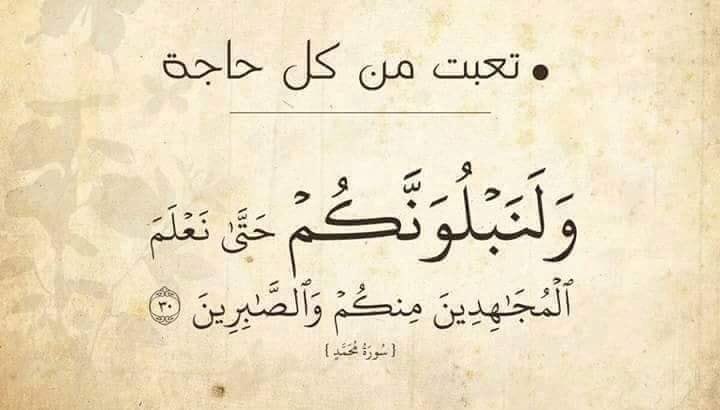 • تعبت من كل حاجة
وَلَنَبۡلُوَنَّكُمۡ حَتَّىٰ نَعۡلَمَ
ٱلۡمُجَٰهِدِينَ مِنكُمۡ وَٱلصَّٰبِرِينَ ٣٠
{ سُورَةُ مُحَمَّدٍ }